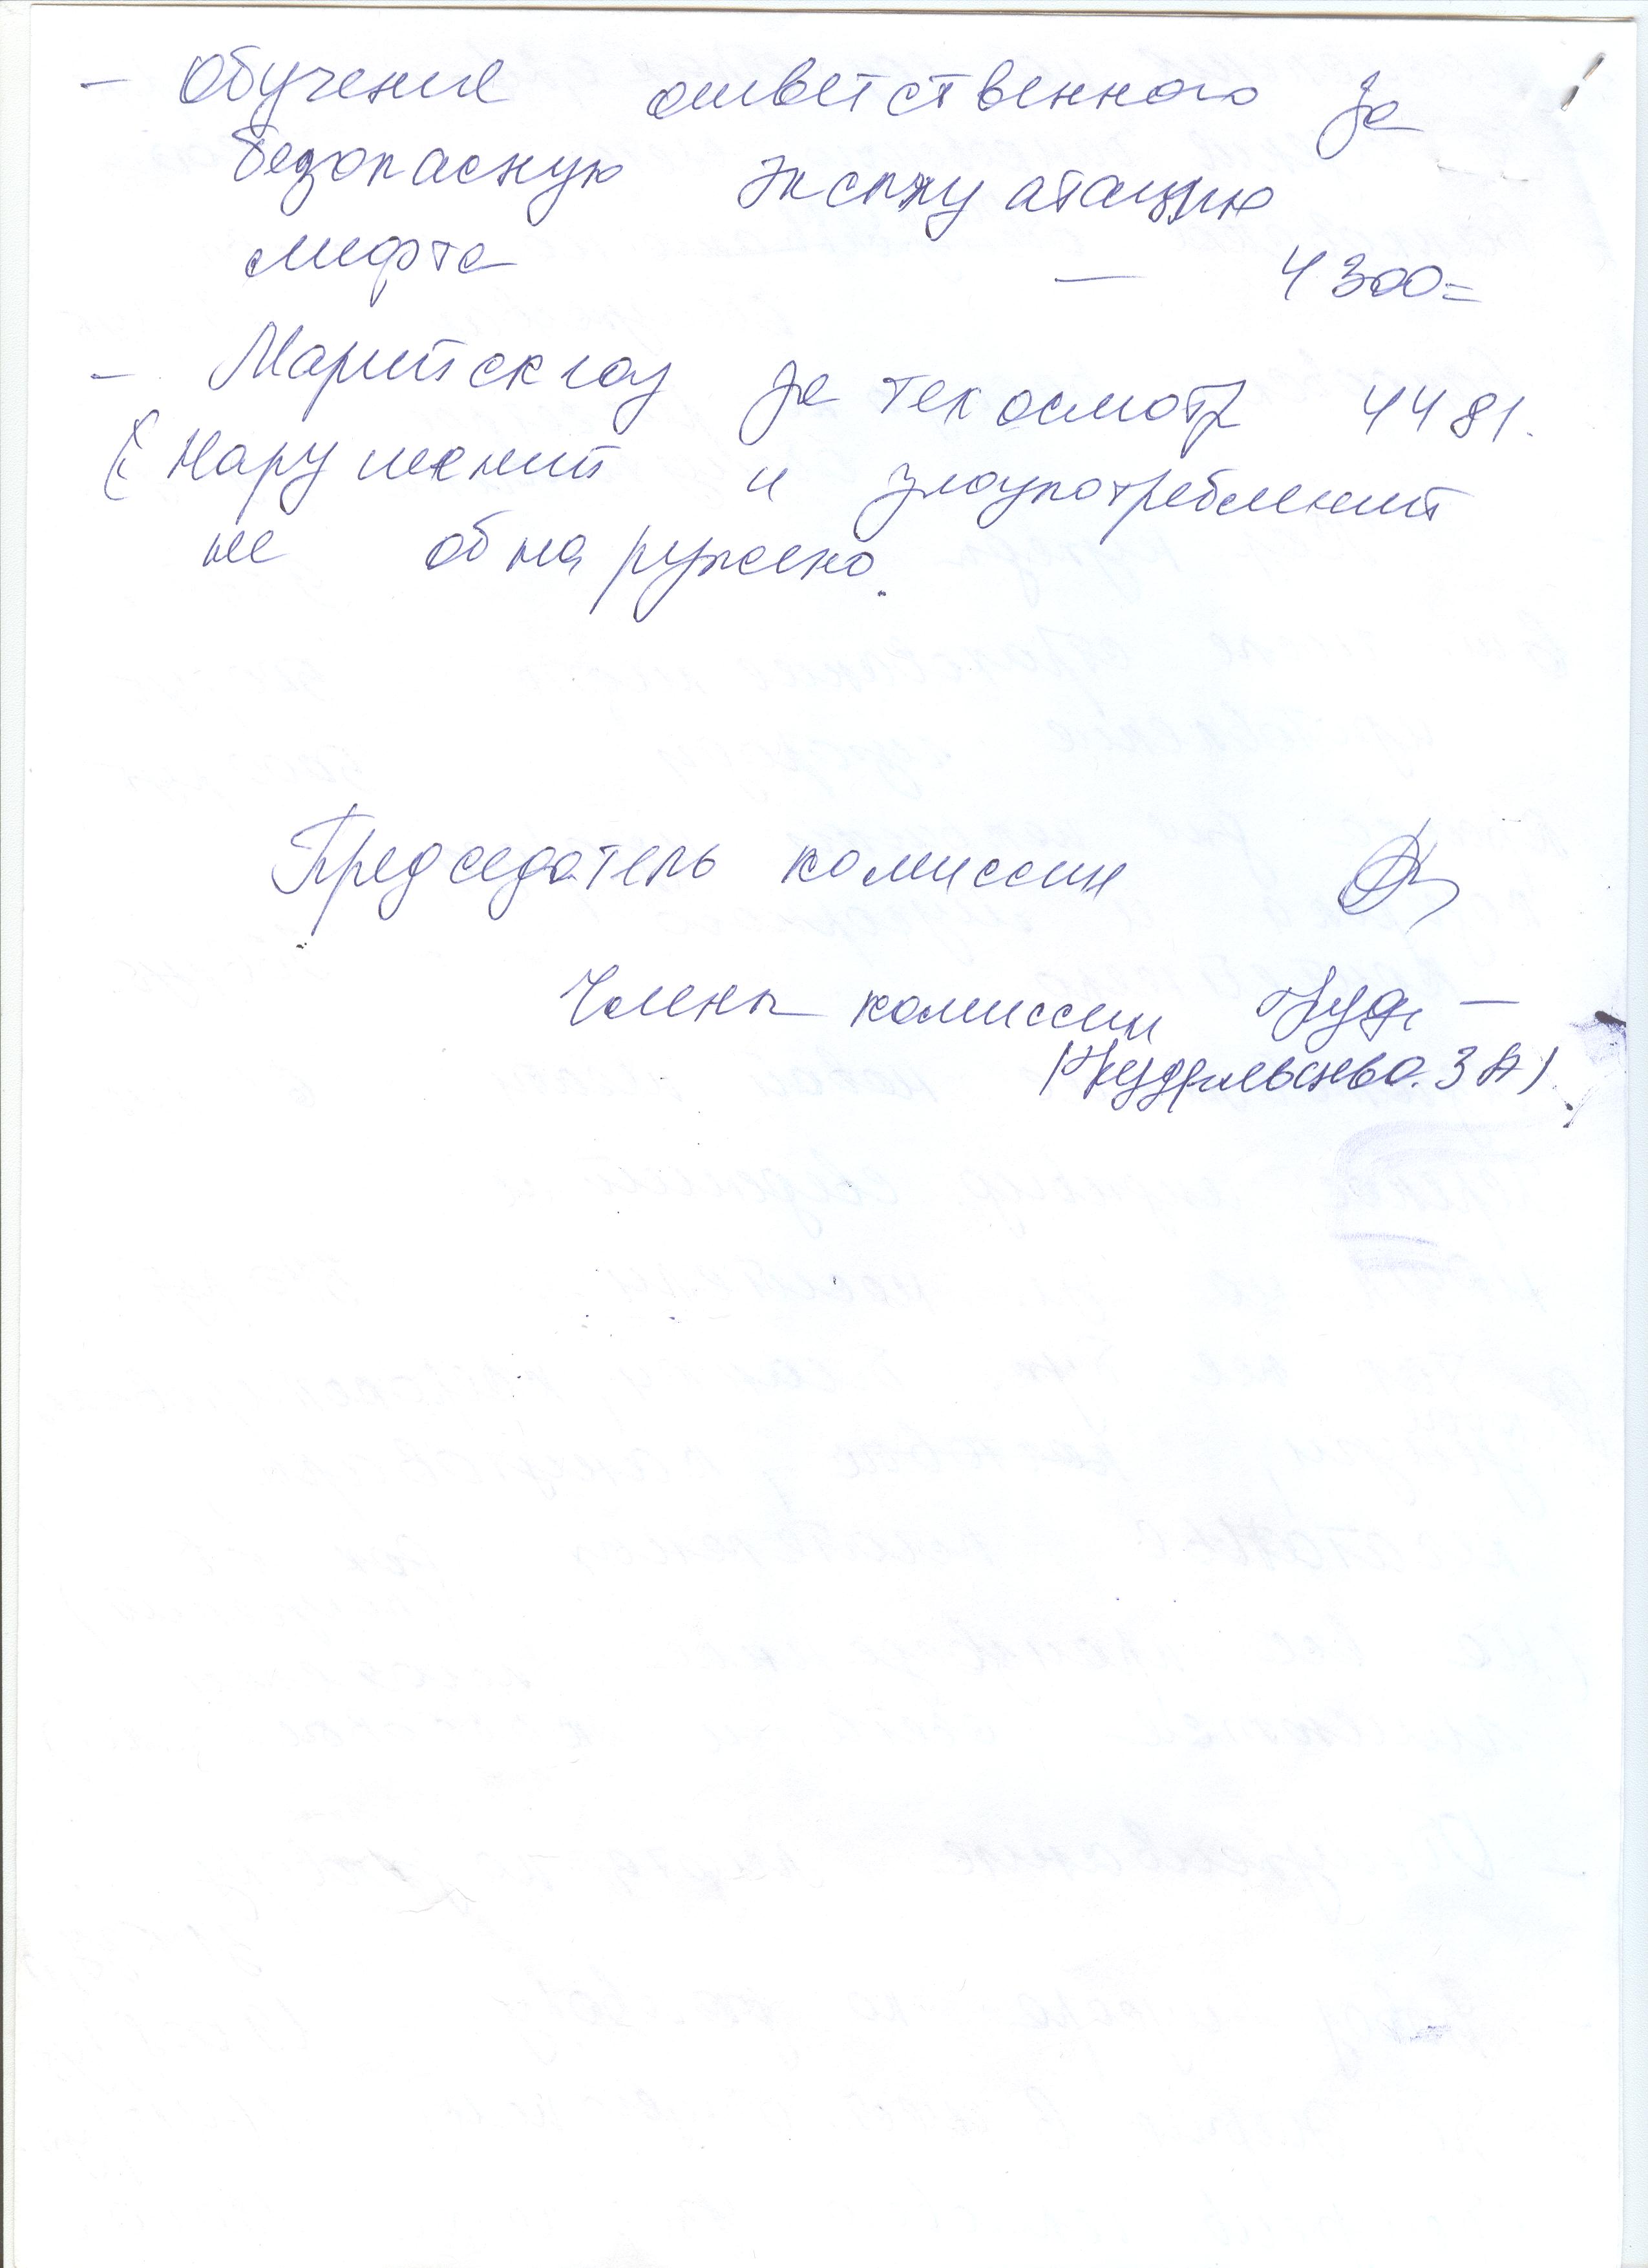 - Обучение ответственного за
безопасную эксплуатацию
лифта — 4300=
- за техосмотр 4481.
Нарушений и злоупотреблений
не обнаружено.
Председатель комиссии
Члены комиссии